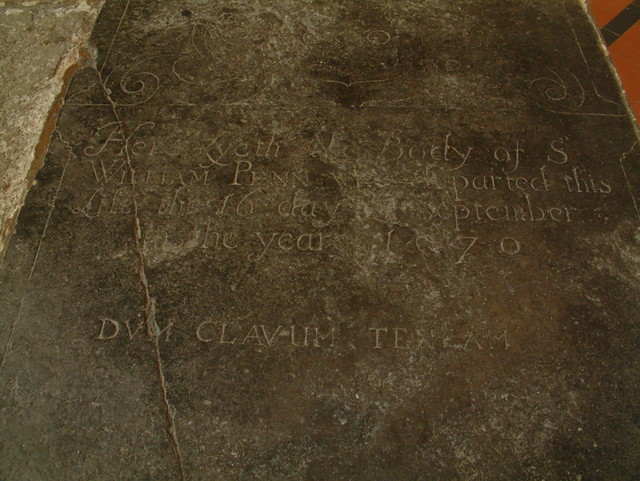 Here Lyeth the Body of S
WILLIAM PENN who departed this
Life the 16 day of September
In the year 1670
DVM CLAVUM TENEAM